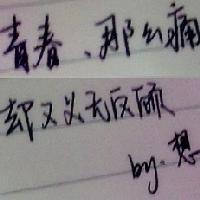 青春、那么痛
却又义无反顾
by.想